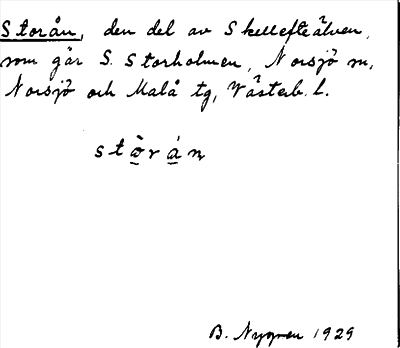 Storån, den del av Skellefteälven,
som går S. Storholmen, Norsjö sn,
Norsjö och Malå tg, Västerb. l.
stòrán
B. Nygren 1929